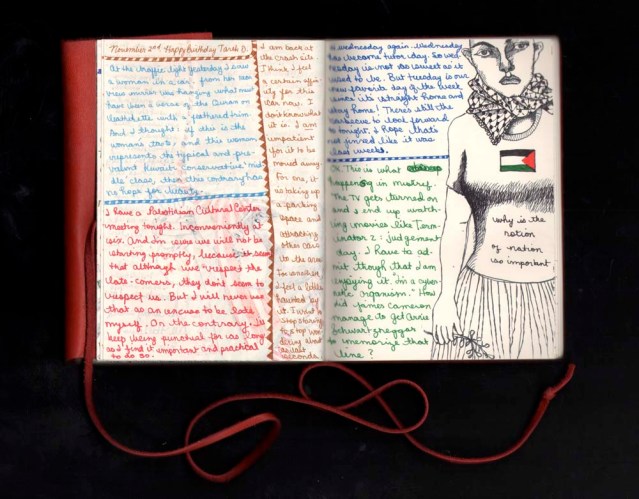 November 2nd Happy Birthday Tareb D.
At the traffic light yesterday I saw
a woman in a car. From her rear
view mirror was hanging what must
have been a verse of the Quran on
leatherette with a feathered trim
And I thought: if this is the
woman's taste and this woman
represents the typical and pre-
valent Kuwaiti conservative "mid
dle" class, then this country has
no hope for beauty.
I have a Palestinian Cultural Center
meeting tonight. Inconveniently at
six. And I'm sure we will not be
starting promptly, because it seems
that although we "respect the
late-comers, they don't seem to
respect us. But I will never use
that as an excuse to be late
myself. On the contrary, I'll
keep being punctual for as long
as I find it important and practical
to do so.
I am back at
the crash site
I think I feel
a certain affin
ity for this
car now. I
don't know what
it is. I am
impatient
for it to be
moved away
For one, it
is taking up
a parking
space and
attracting
other cars
to the area
I feel a little
haunted by
it. I want to
stop staring
last
seconds
is wednesday again. Wednesday
has become tutor day. So wed
nesday is not so sweet as it
used to be. But tuesday is our
new favorite day of the week
since it's straight home and
stay home! There's still the
barbecue to look forward
to tonight. I hope that's
not jinxed like it was
last week.
OK. This is what
happens in Mistref.
The TV gets turned on
and I end up watch
ing movies like Term
inator 2: judgement
day. I have to ad-
mit though that I am
enjoying it. "I'm a cyber-
netic organism." How
did James Cameron
manage to get Arnie
Schwarzneggar
to memorize that
line?
why is the
notion
of nation
so important